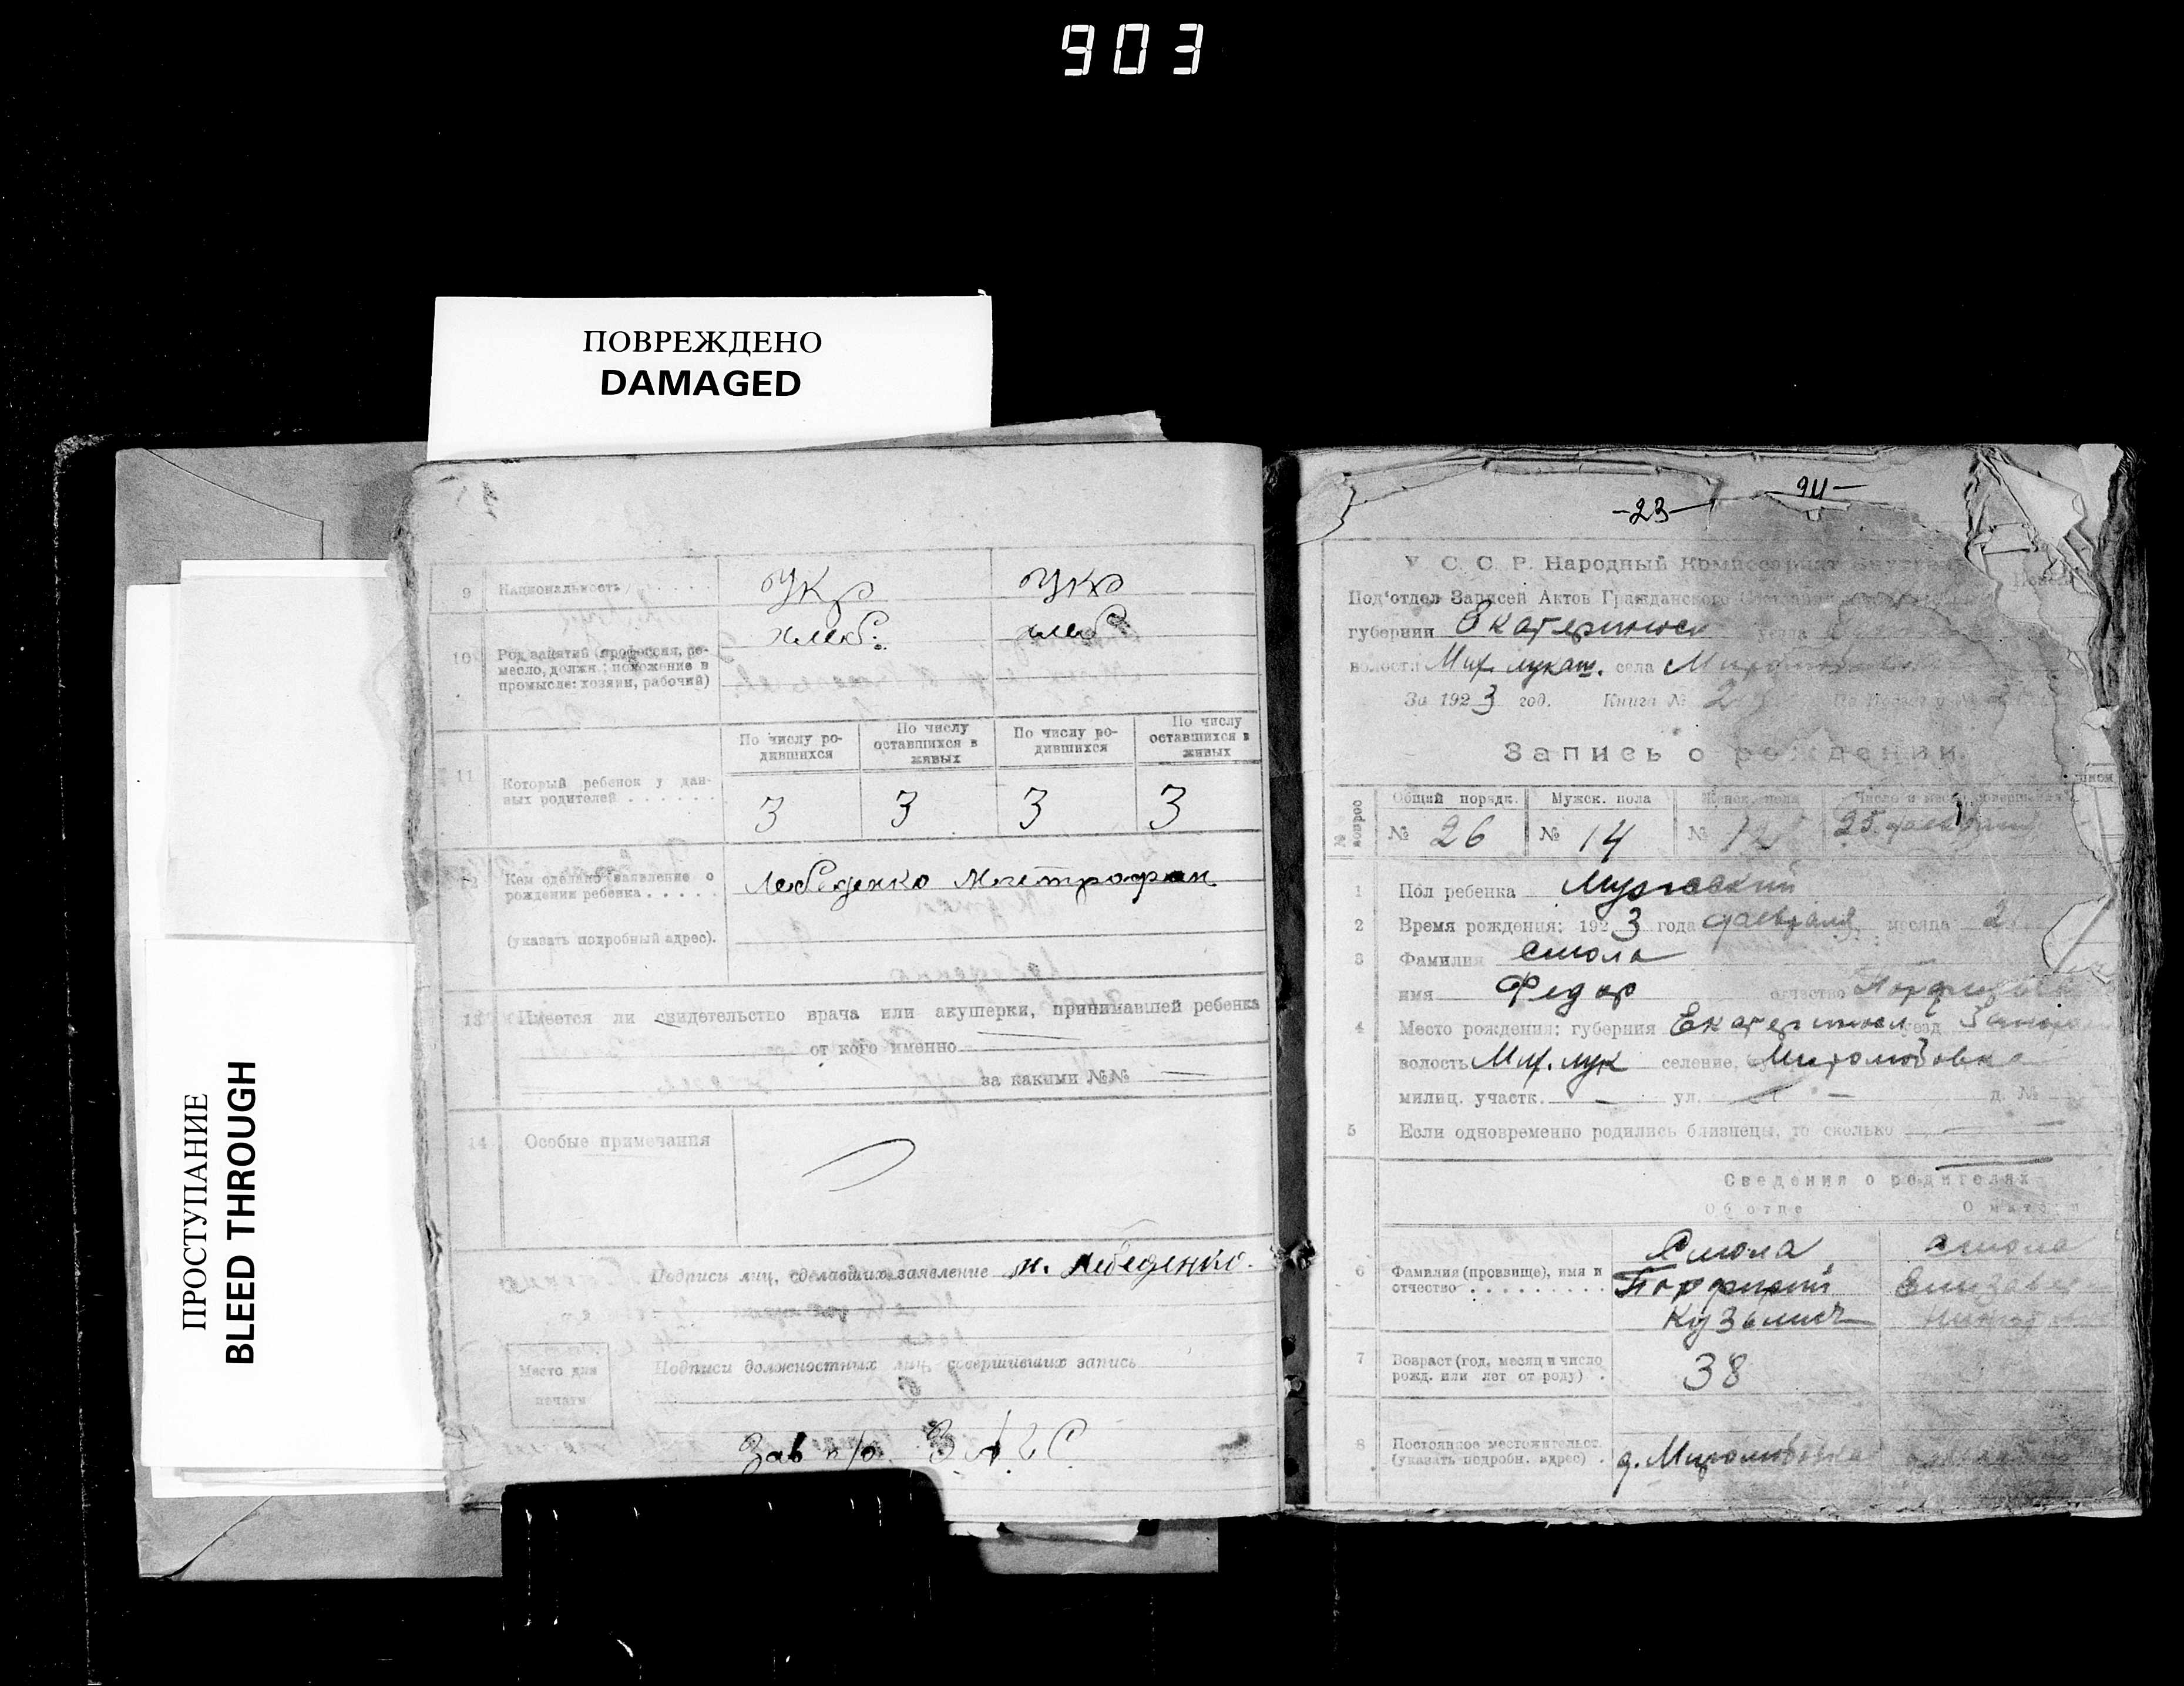 903
ПОВРЕЖДЕНО
DAMAGED
ПРОСТУПАНИЕ
BLEED THROUGH
9 Национальность укр укр
хлеб. хлеб
10 Род занятий (профессия, ре-
месло, должн.; положение в
промысле: хозяин, рабочий)
По числу ро-
дившихся
По числу
оставшихся в
живых
По числу ро-
дившихся
По числу
оставшихся в
живых
11 Который ребенок у дан-
ных родителей 3 3 3 3
12 Кем сделано заявление о
рождении ребенка Лебеденко Митрофан
(указать подробный адрес).
13 Имеется ли свидетельство врача или акушерки, принимавшей ребенка
от кого именно
за какими №№
14 Особые примечания
Подписи лиц, сделавших заявление М. Лебеденко.
Место для
печати
Подписи должностных лиц, совершивших запись
Зав п/о. ЗАГС
-23- 94-
У. С. С. Р. Народный Комиссариат Внутрен
Под'отдел Записей Актов Гражданского
губернии Екатериносл уезда
волости Мих. лукаш. села
За 1923 год. Книга № 2
Запись о рождении.
№ вопрос Общий порядк. Мужск. пола Женск. пола
№ 26 № 14 № 12 25 февраля
1 Пол ребенка Мужеский
2 Время рождения: 1923 года февраля месяца 2
3 Фамилия Смола
имя Федор отчество
4 Место рождения: губерния Екатериносл уезд Запор
волость Мих. лук селение, Миролюбовка
милиц. участк. — ул. — д. №
5 Если одновременно родились близнецы, то сколько
Сведения о родителях
Об отце О матери
6 Фамилия (прозвище), имя и
отчество
Смола Смола
Порфирий
Кузьмич
7 Возраст (год, месяц и число
рожд. или лет от роду) 38
8 Постоянное местожительст.
(указать подробн. адрес) д. Миролюбовка